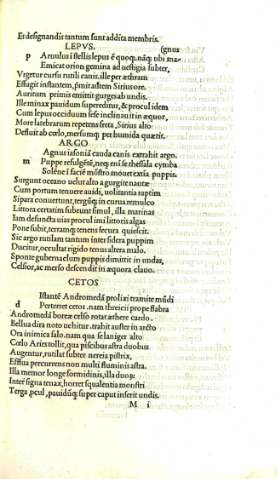 Et designandis tantum sunt addita membris.
LEPVS. (gnus
p Aruulus istellis lepus é quoq; náq; ubi ma-
Emicat orion gemina ad uestigia subter,
Vrgetur cursu rutili canis. ille per æthram
Effugit instantem, premit astem Sirius ore.
Auritum primis emittit gurgitab undis.
Illemi nax pauidum supereditur, & procul idem
Cum lepus occiduum sese inclinauit in æquor,
More latebrarum repetens freta, Sirius alto
Desuit ab cœlo, mersumq; per humida quærit.
ARGO
Agnus isonia cauda canis extrahit argo.
m Puppe refulgésté, neq; eni se thessala cymba
Solène facié móstro mouet extis puppis.
Surgunt oceano uelut alto a gurgite nautæ
Cum portam tenuere auidi, uolitantia raptim
Sipara conuertunt, tunc in ceruia remulco
Littora certatim subeunt simul, illa marinas
Iam defuncta uias procul ima litoris algas
Pone subit, terramq; tenens secura quiescit.
Sic argo rutilam tantum interfidera puppim
Ducitur, occultat rigido tenus altera malo.
Sponte gubernaclum puppis dimittit in undas,
Celsior, ac merso descendit in æquora clauo.
CETOS
Istanté Andromedá prolixi tramite mũdi
d Perternet cetos. nam threicii prope flabra
Andromedá boreæ celso rotar arhere cardo.
Bellua dira noto uehitur. trahit auster in arcto
Ora inimica salo. nam qua se laniger alto
Cœlo Aries tollit, qua piscibus astra duobus
Augentur, rutilat subter nereia pistrix,
Effusi percurrens non multi fluminis astra.
Illa memor longe formidinis, illa duoꝝ
Inter signa tenax, horret squalentia monstri
Terga, pcul, pauidũq; super caput inserit undis.
M i